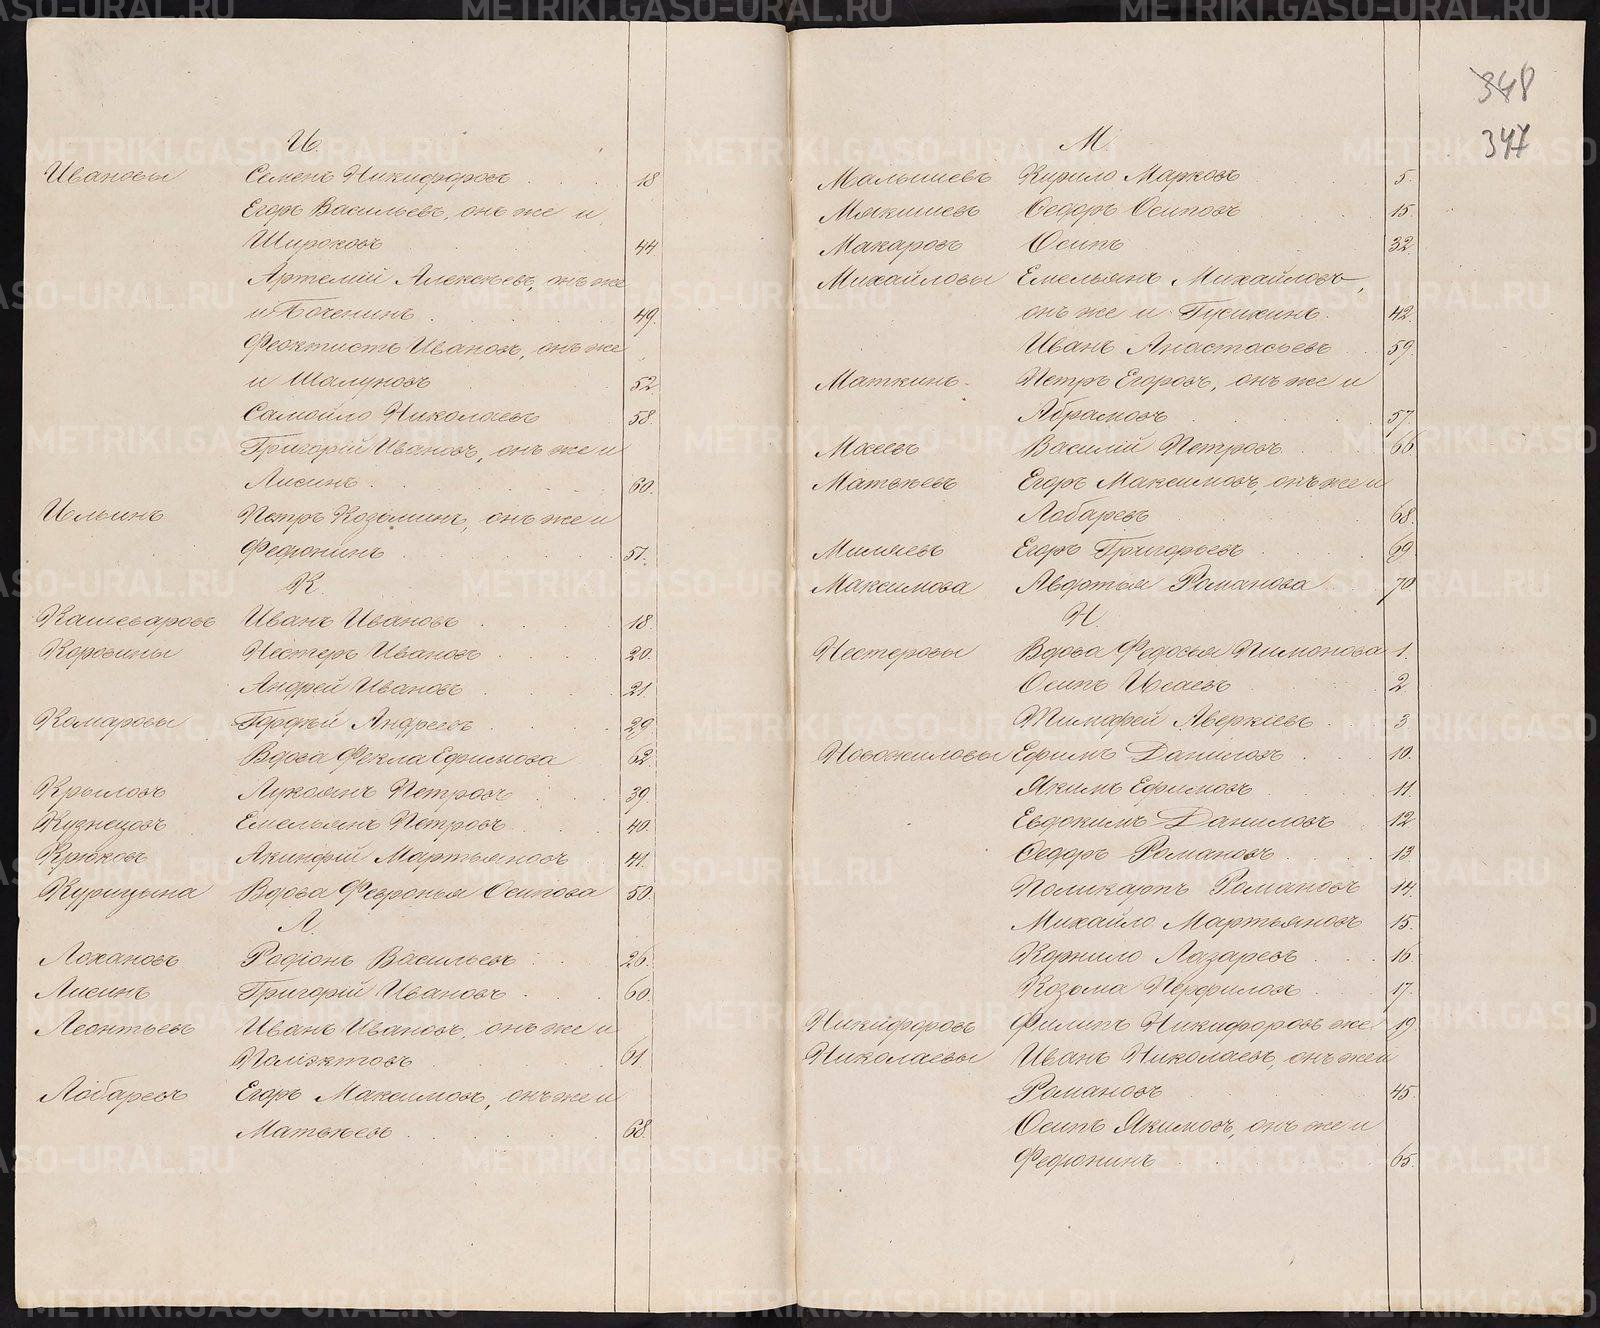 И.
Ивановы Семенъ Никифоровъ 18
Егоръ Васильевъ, онъ же и
Широковъ 44
Артемій Алексѣевъ, онъ же
и Боченинъ 49.
Феоктистъ Ивановъ, онъ же
и Шалуновъ 52
Самойло Николаевъ 58.
Григорій Ивановъ, онъ же и
Лисинъ 60.
Ильинъ Петръ Козьминъ, онъ же и
Федюнинъ 51.
К.
Кашеваровъ Иванъ Ивановъ 18.
Коровины Нестеръ Ивановъ 20.
Андрей Ивановъ 21.
Комаровы Гордѣй Андреевъ 29
Вдова Фекла Ефимова 62
Крыловъ Лукоянъ Петровъ 39.
Кузнецовъ Емельянъ Петровъ 40.
Крюковъ Акинфій Мартьяновъ 41.
Курицына Вдова Февронья Осипова 50.
Л.
Лохановъ Родіонъ Васильевъ 26.
Лисинъ Григорій Ивановъ 60.
Леонтьевъ Иванъ Ивановъ, онъ же и
Поліэктовъ 61.
Лобаревъ Егоръ Максимовъ, онъ же и
Матвѣевъ 68.
348
347
М.
Малышевъ Кирило Марковъ 5.
Мякишевъ Федоръ Осиповъ 15.
Макаровъ Осипъ 32
Михайловы Емельянъ Михайловъ,
онъ же и Гусихинъ 42.
Иванъ Анастасьевъ 59.
Маткинъ Петръ Егоровъ, онъ же и
Абрамовъ 57.
Мосеевъ Василій Петровъ 66
Матвѣевъ Егоръ Максимовъ, онъ же и
Лобаревъ 68.
Миляевъ Егоръ Григорьевъ 69.
Максимова Авдотья Романова 70.
Н.
Нестеровы Вдова Федосья Пимонова 1.
Осипъ Исаевъ 2.
Тимофей Аверкіевъ 3
Новожиловы Ефимъ Даниловъ 10.
Якимъ Ефимовъ 11.
Евдокимъ Даниловъ 12
Федоръ Романовъ 13.
Поликарпъ Романовъ 14.
Михайло Мартьяновъ 15.
Корнило Лазаревъ 16
Козьма Перфиловъ 17.
Никифоровъ Филипъ Никифоровъ же 19.
Николаевы Иванъ Николаевъ, онъ же и
Романовъ 45.
Осипъ Якимовъ, онъ же и
Федюнинъ 65.
METRIKI.GASO-URAL.RU